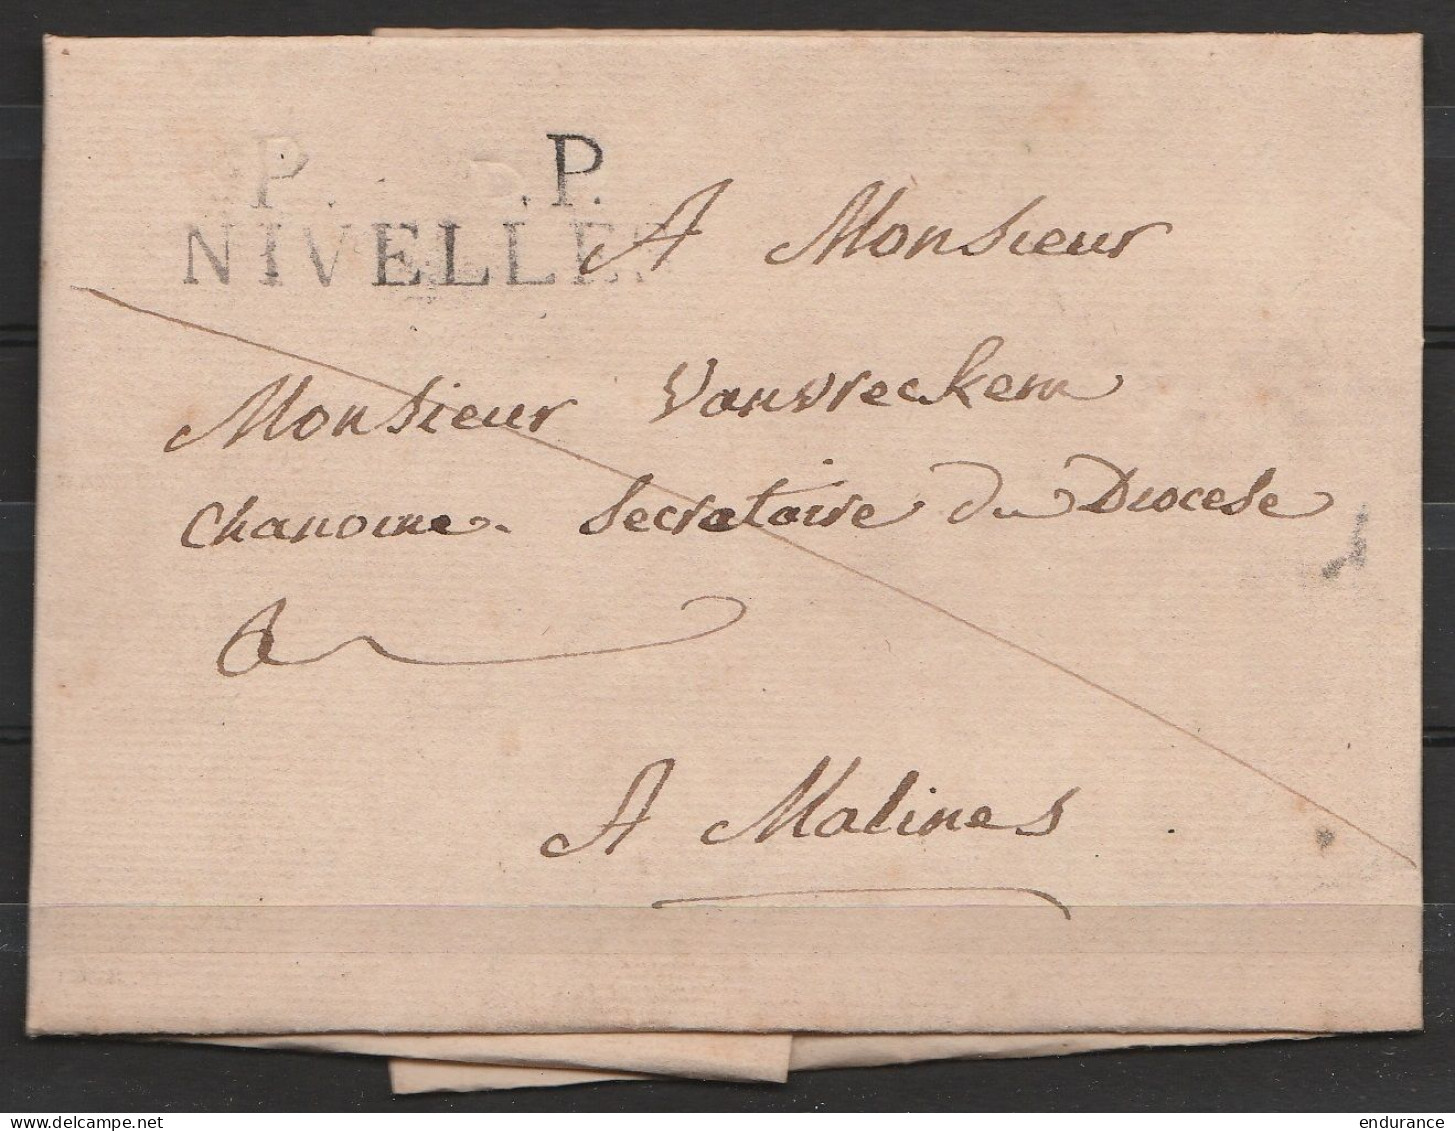 P. .P.
NIVELLES
A Monsieur
Monsieur Vanvreckem
Chanoine Secretaire du Diocese
a
A Malines
delcampe.net
endurance